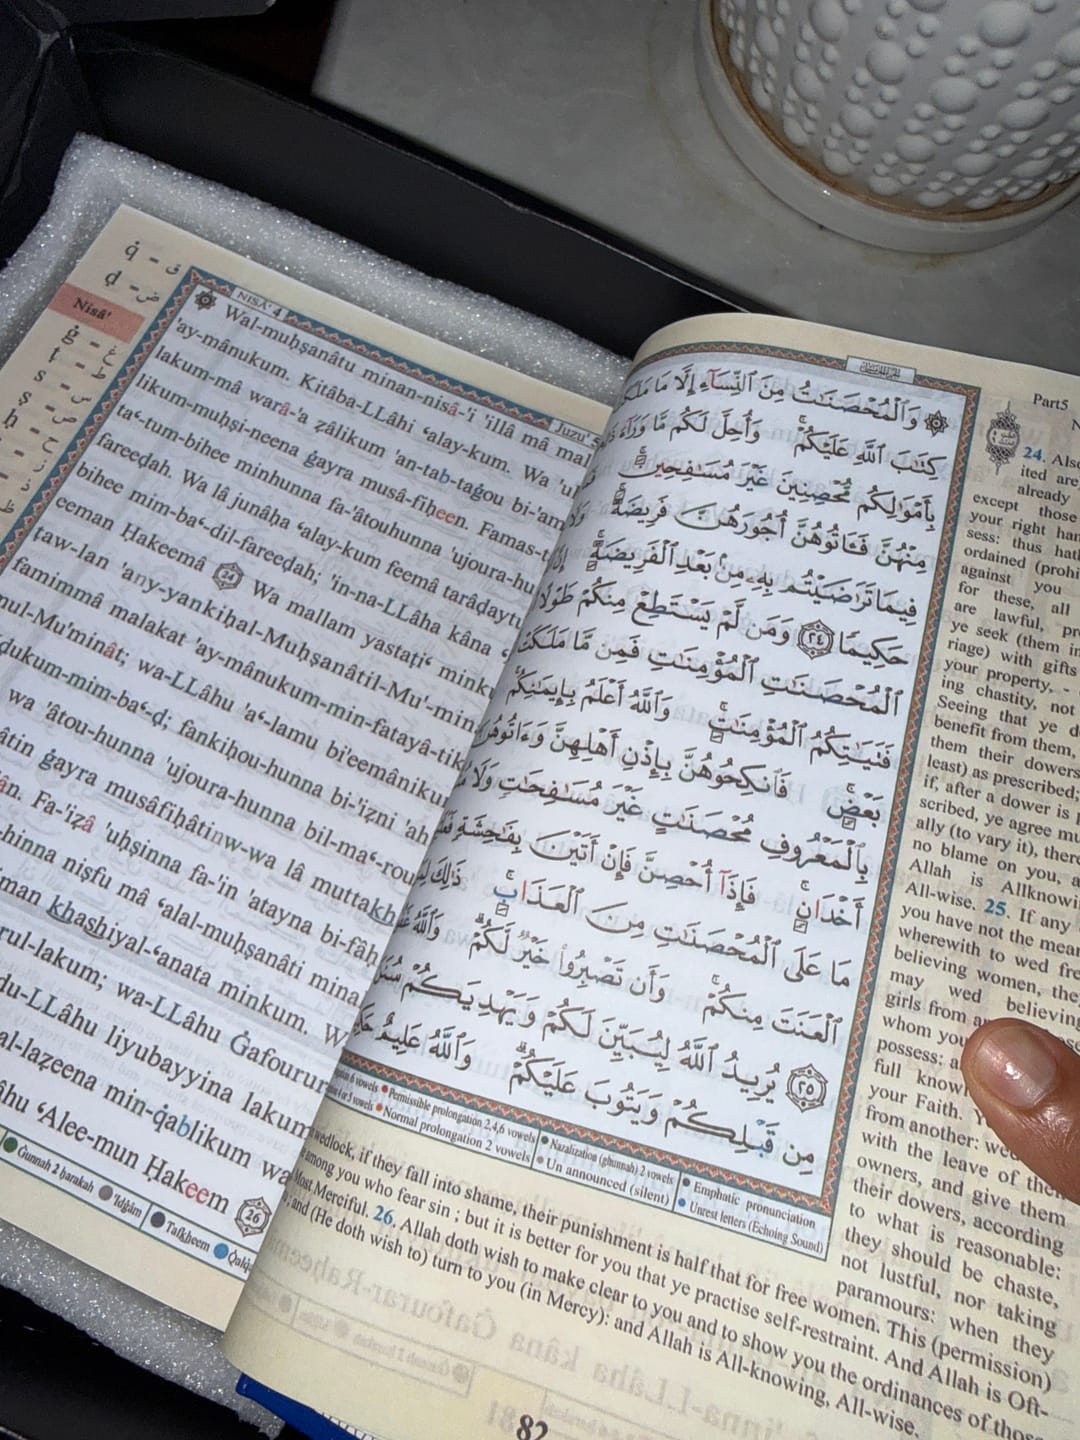 q̇ = ق
ḍ = ض
Nisâ'
ġ = غ
ṭ = ط
s = س
ṣ = ص
ḥ = ح
NISÂ' 4
Juzu' 5
Wal-muḥṣanâtu minan-nisâ-'i 'illâ mâ mal
'ay-mânukum. Kitâba-LLâhi ‘alay-kum. Wa 'uḥ
lakum-mâ warâ-'a ẓâlikum 'an-tab-taġou bi-'am
likum-muḥṣi-neena ġayra musâ-fiḥeen. Famas-t
ta‘-tum-bihee minhunna fa-'âtouhunna 'ujoura-hu
fareeḍah. Wa lâ junâḥa ‘alay-kum feemâ tarâḍaytu
bihee mim-ba‘-dil-fareeḍah; 'in-na-LLâha kâna ‘
eeman Ḥakeemâ 24 Wa mallam yastaṭi‘ minku
ṭaw-lan 'any-yankiḥal-Muḥṣanâtil-Mu'-min
famimmâ malakat 'ay-mânukum-min-fatayâ-tik
nul-Mu'minât; wa-LLâhu 'a‘-lamu bi'eemâniku
dukum-mim-ba‘-ḍ; fankiḥou-hunna bi-'iẓni 'ah
wa 'âtou-hunna 'ujoura-hunna bil-ma‘-rou
âtin ġayra musâfiḥâtinw-wa lâ muttakh
ân. Fa-'iẓâ 'uḥṣinna fa-'in 'atayna bi-fâḥ
hinna niṣfu mâ ‘alal-muḥṣanâti mina
man khashiyal-‘anata minkum. W
rul-lakum; wa-LLâhu Ġafourur
du-LLâhu liyubayyina lakum
al-laẓeena min-q̇ablikum wa
âhu ‘Alee-mun Ḥakeem 26
Ġunnah 2 ḥarakah 'Idġâm Tafkheem
وَٱلْمُحْصَنَٰتُ مِنَ ٱلنِّسَآءِ إِلَّا مَا مَلَكَ
كِتَٰبَ ٱللَّهِ عَلَيْكُمْ ۚ وَأُحِلَّ لَكُم مَّا وَرَآءَ
بِأَمْوَٰلِكُم مُّحْصِنِينَ غَيْرَ مُسَٰفِحِينَ ۚ
مِنْهُنَّ فَـَٔاتُوهُنَّ أُجُورَهُنَّ فَرِيضَةً ۚ وَلَا
فِيمَا تَرَٰضَيْتُم بِهِۦ مِنۢ بَعْدِ ٱلْفَرِيضَةِ ۚ إِنَّ
حَكِيمًا ٢٤ وَمَن لَّمْ يَسْتَطِعْ مِنكُمْ طَوْلًا
ٱلْمُحْصَنَٰتِ ٱلْمُؤْمِنَٰتِ فَمِن مَّا مَلَكَتْ
فَتَيَٰتِكُمُ ٱلْمُؤْمِنَٰتِ ۚ وَٱللَّهُ أَعْلَمُ بِإِيمَٰنِكُم
بَعْضٍ ۚ فَٱنكِحُوهُنَّ بِإِذْنِ أَهْلِهِنَّ وَءَاتُوهُنَّ
بِٱلْمَعْرُوفِ مُحْصَنَٰتٍ غَيْرَ مُسَٰفِحَٰتٍ وَلَا
أَخْدَانٍ ۚ فَإِذَآ أُحْصِنَّ فَإِنْ أَتَيْنَ بِفَٰحِشَةٍ
مَا عَلَى ٱلْمُحْصَنَٰتِ مِنَ ٱلْعَذَابِ ۚ ذَٰلِكَ
ٱلْعَنَتَ مِنكُمْ ۚ وَأَن تَصْبِرُوا۟ خَيْرٌ لَّكُمْ ۗ وَٱللَّهُ
٢٥ يُرِيدُ ٱللَّهُ لِيُبَيِّنَ لَكُمْ وَيَهْدِيَكُمْ
مِن قَبْلِكُمْ وَيَتُوبَ عَلَيْكُمْ ۗ وَٱللَّهُ عَلِيمٌ
6 vowels Permissible prolongation 2,4,6 vowels Nazalization (ghunnah) 2 vowels Emphatic pronunciation
4 or 5 vowels Normal prolongation 2 vowels Un announced (silent) Unrest letters (Echoing Sound)
Part5
24. Also
ited are
already
except those
your right han
sess: thus hath
ordained (prohi
against you
for these, all
are lawful, pro
ye seek (them in
riage) with gifts
your property, -
ing chastity, not
Seeing that ye d
benefit from them,
them their dowers
least) as prescribed;
if, after a dower is p
scribed, ye agree mu
ally (to vary it), there
no blame on you, a
Allah is Allknowi
All-wise. 25. If any
you have not the mean
wherewith to wed fre
believing women, the
may wed believing
girls from
whom you
possess;
full know
your Faith.
from another:
with the leave of their
owners, and give them
their dowers, according
to what is reasonable:
they should be chaste,
not lustful, nor taking
paramours: when they
wedlock, if they fall into shame, their punishment is half that for free women. This (permission)
among you who fear sin ; but it is better for you that ye practise self-restraint. And Allah is Oft-
Most Merciful. 26. Allah doth wish to make clear to you and to show you the ordinances of those
and (He doth wish to) turn to you (in Mercy): and Allah is All-knowing, All-wise.
82